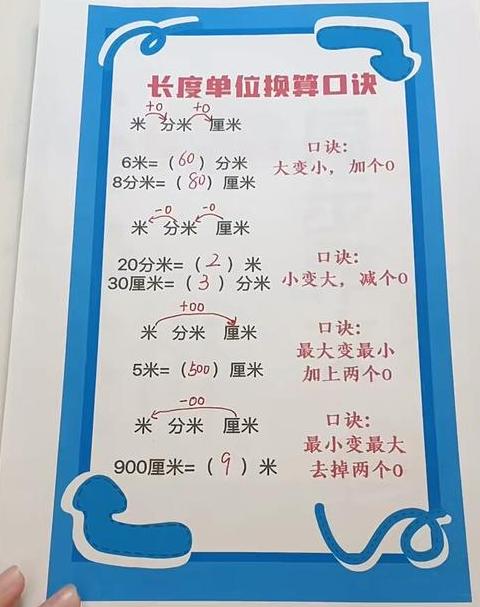 长度单位换算口诀
+0 +0
米 分米 厘米
6米=（60）分米
8分米=（80）厘米
口诀：
大变小，加个0
-0 -0
米 分米 厘米
20分米=（2）米
30厘米=（3）分米
口诀：
小变大，减个0
+00
米 分米 厘米
5米=（500）厘米
口诀：
最大变最小
加上两个0
-00
米 分米 厘米
900厘米=（9）米
口诀：
最小变最大
去掉两个0